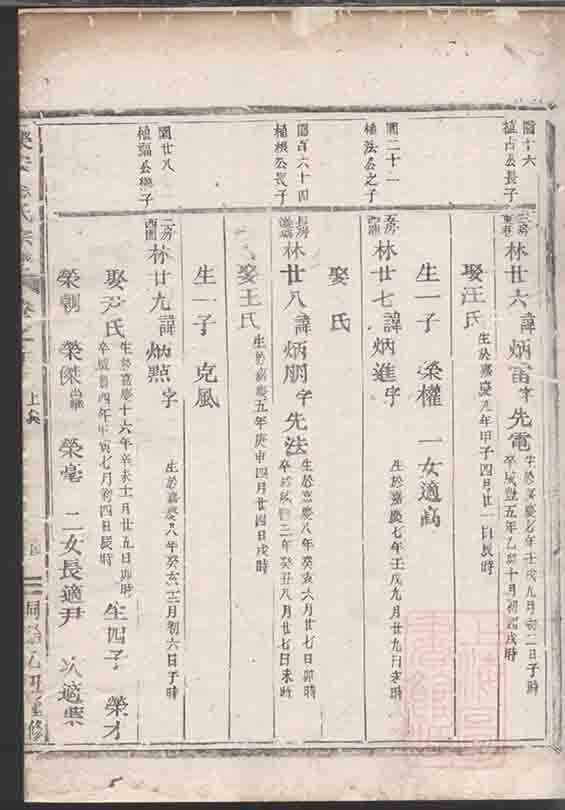 圖十六
植占公長子
林廿六諱炳雷字先電
生於嘉慶七年壬戌九月初二日子時
卒咸豐五年乙卯十月初 戌時
娶汪氏
生於嘉慶九年甲子四月廿一日辰時
生一子 榮權 一女適高
圖二十一
植法公之子
林廿七諱炳進字
生於嘉慶七年壬戌九月廿九日未時
娶 氏
圖百六十四
植 公長子
長房
林廿八諱炳朋字先法
生於嘉慶八年癸亥六月廿七日卯時
卒於咸豐三年癸丑八月廿七日未時
娶王氏
生於嘉慶五年庚申四月廿四日戌時
生一子 克風
圖廿八
植 公 子
二房
西
林廿九諱炳點字
生於嘉慶八年癸亥 月初六日子時
娶尹氏
生於嘉慶十六年辛未十一月廿五日卯時
卒咸豐四年甲寅七月初四日辰時
生四子 榮才
榮朝 榮傑 榮毫 二女長適尹 次適柴
卷之
同治乙丑重修